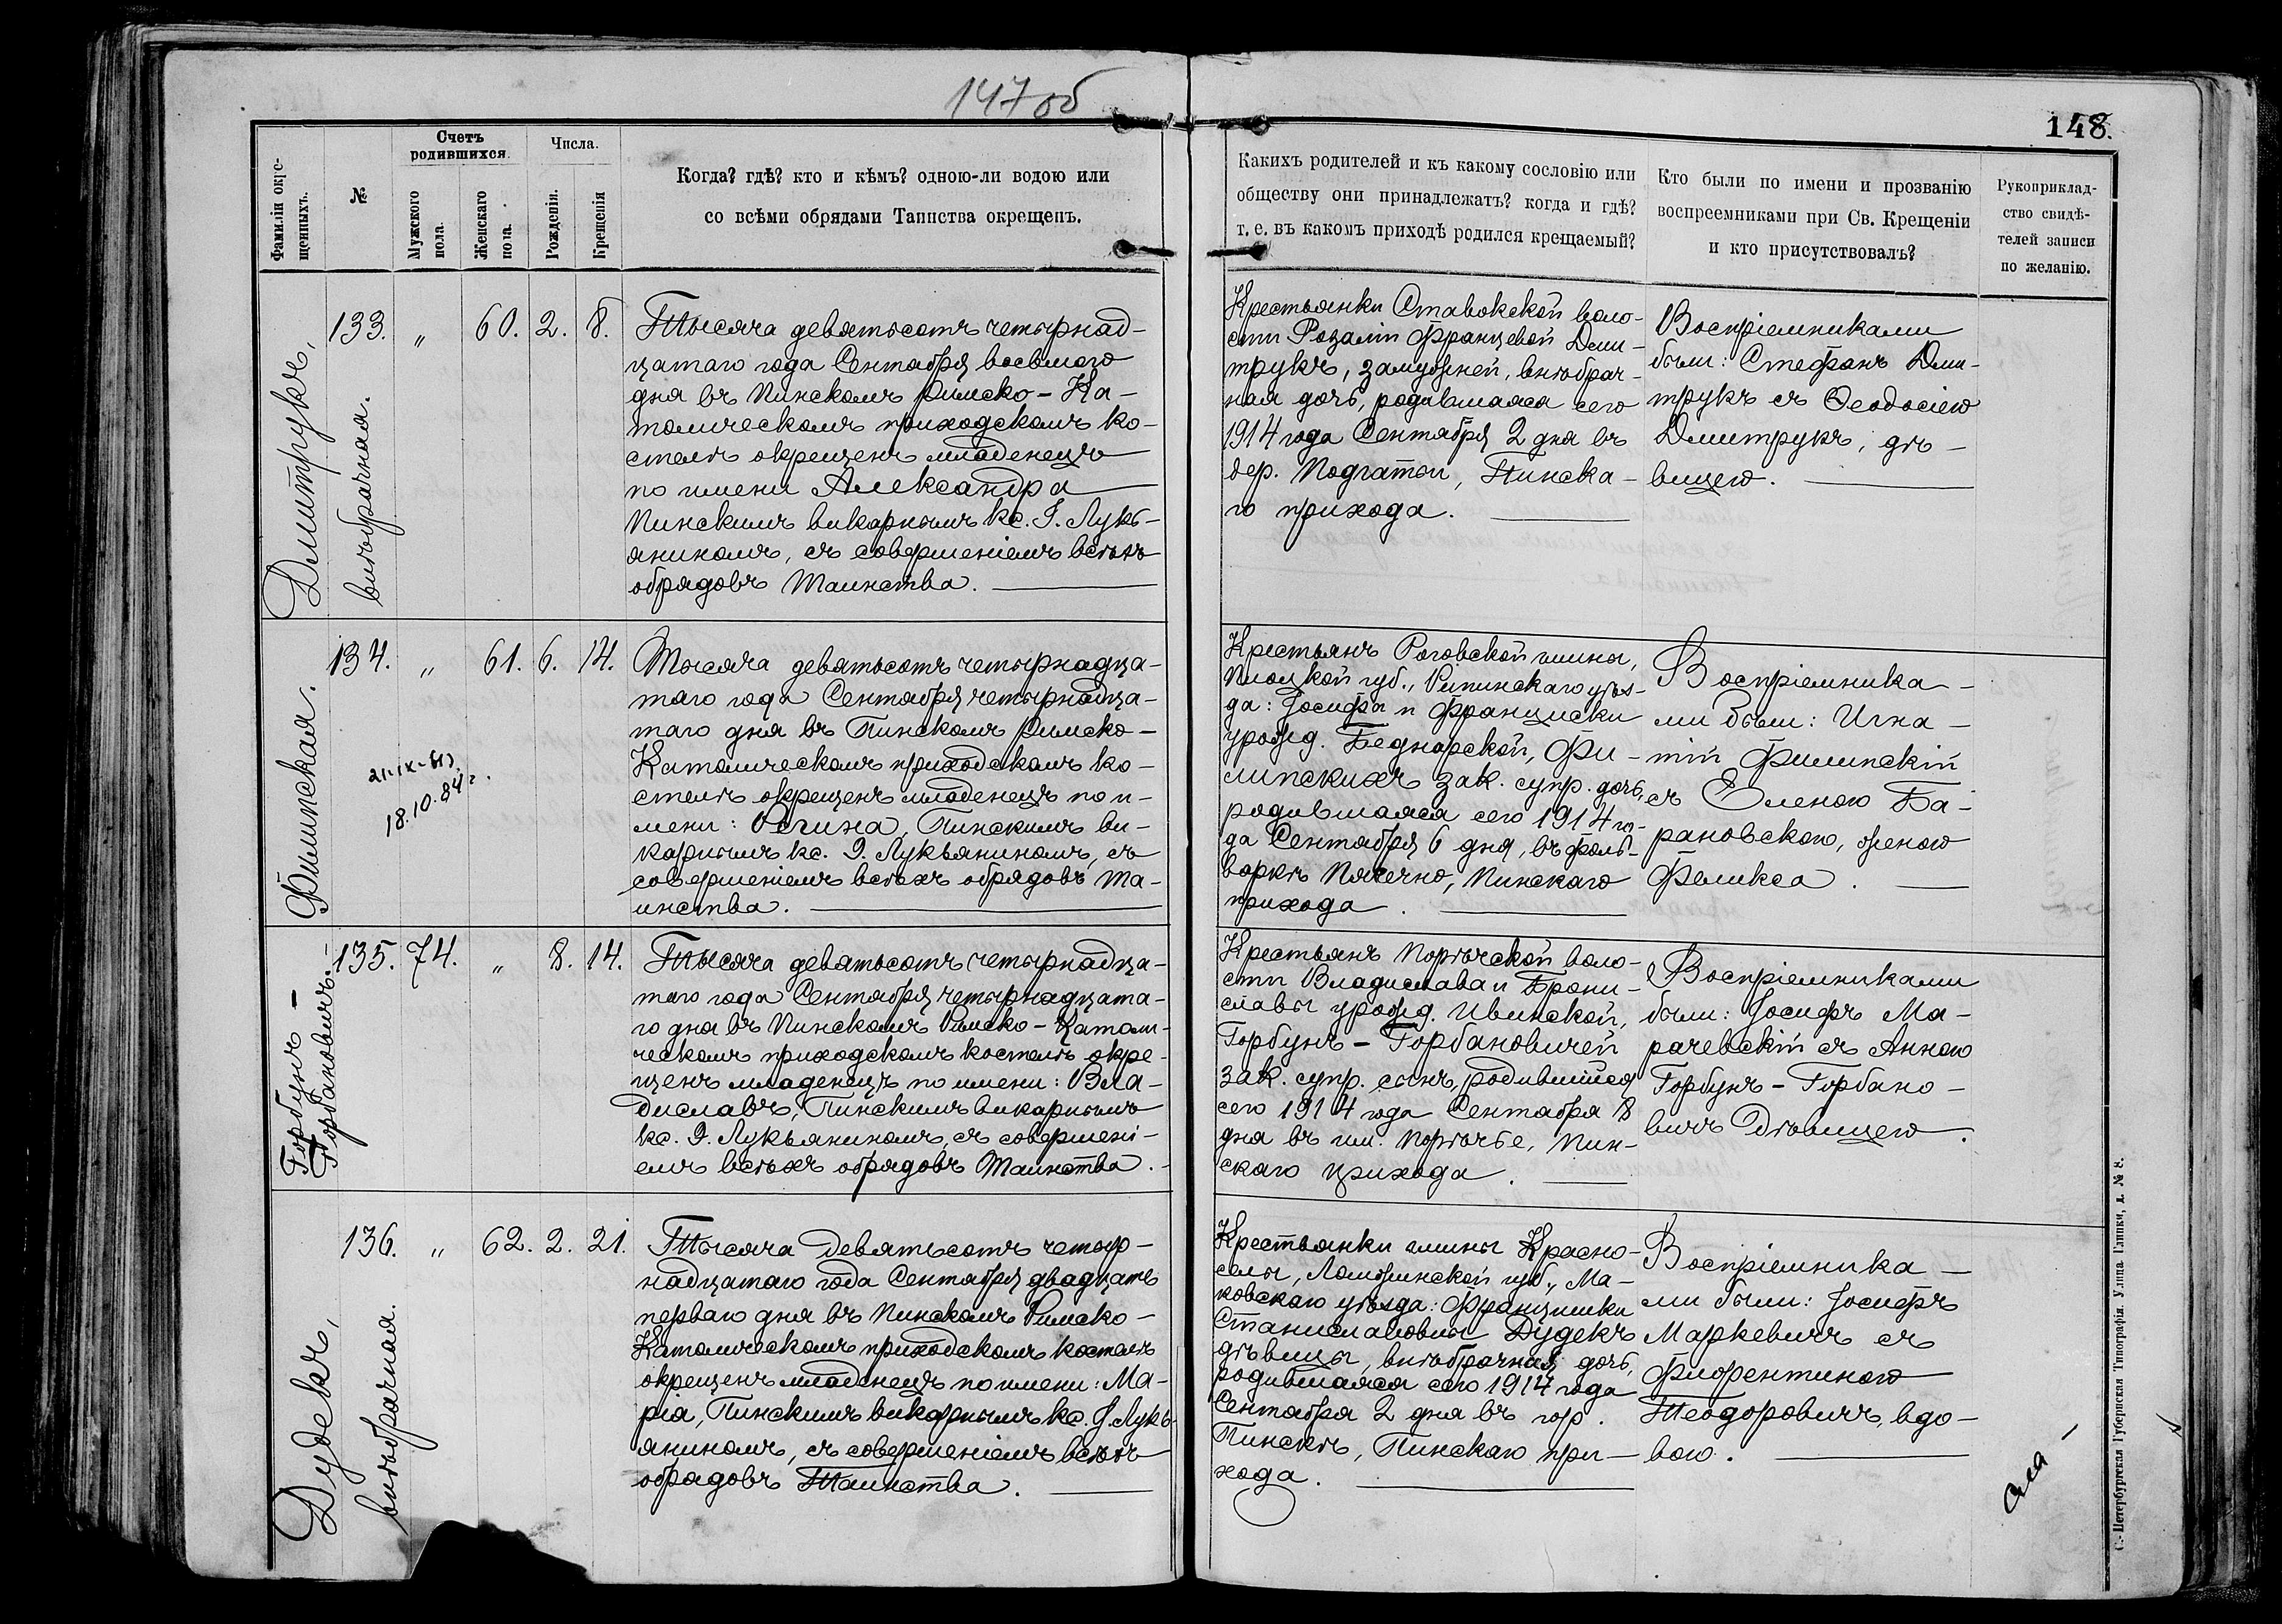 147об
148.
Фамиліи окре-
щенныхъ.
№
Счетъ
родившихся.
Мужского
пола.
Женскаго
пола.
Числа.
Рожденія.
Крещенія
Когда? гдѣ? кто и кѣмъ? одною-ли водою или
со всѣми обрядами Таинства окрещенъ.
Какихъ родителей и къ какому сословію или
обществу они принадлежатъ? когда и гдѣ?
т. е. въ какомъ приходѣ родился крещаемый?
Кто были по имени и прозванію
воспреемниками при Св. Крещеніи
и кто присутствовалъ?
Рукоприклад-
ство свидѣ-
телей записи
по желанію.
Дмитрукъ,
внѣбрачная.
133. „ 60. 2. 8.
Тысяча девятьсотъ четырнад-
цатаго года Сентября восьмого
дня въ Пинскомъ Римско-Ка-
толическомъ приходскомъ ко-
стелѣ окрещенъ младенецъ
по имени Александра
Пинскимъ викарнымъ кс. І. Лукь-
яникомъ, съ совершеніемъ всѣхъ
обрядовъ Таинства.
Крестьянки Ставокской воло-
сти Розаліи Францевой Дми-
трукъ, замужней, внѣбрач-
ная дочь, родившаяся сего
1914 года Сентября 2 дня въ
дер. Подгатьи, Пинска-
го прихода.
Воспріемниками
были: Стефанъ Дми-
трукъ съ Ѳеодосіею
Дмитрукъ, дѣ-
вицею.
Филипская.
134. „ 61. 6. 14.
21-IX-61).
18.10.84г.
Тысяча девятьсотъ четырнадца-
таго года Сентября четырнадца-
таго дня въ Пинскомъ Римско-
Католическомъ приходскомъ ко-
стелѣ окрещенъ младенецъ по и-
мени: Регина, Пинскимъ ви-
карнымъ кс. І. Лукьяникомъ, съ
совершеніемъ всѣхъ обрядовъ Та-
инства.
Крестьянъ Роговской гмины,
Плоцкой губ., Рипинскаго уѣз-
да: Іосифа и Франциски
урожд. Беднарской, Фи-
липскихъ зак. супр. дочь,
родившаяся сего 1914 го-
да Сентября 6 дня, въ фоль-
варкѣ Плечно, Пинскаго
прихода.
Воспріемника-
ми были: Игна-
тій Филипскій
съ Еленою Ба-
рановскою, женою
Феликса.
Горбунъ-
Горбановичъ.-
135. 74. „ 8. 14.
Тысяча девятьсотъ четырнадца-
таго года Сентября четырнадцата-
го дня въ Пинскомъ Римско-Католи-
ческомъ приходскомъ костелѣ окре-
щенъ младенецъ по имени: Вла-
диславъ, Пинскимъ викарнымъ
кс. І. Лукьяникомъ, съ совершені-
емъ всѣхъ обрядовъ Таинства.
Крестьянъ Порѣчской воло-
сти Владислава и Брони-
славы урожд. Ивинской,
Горбунъ-Горбановичей
зак. супр. сынъ, родившійся
сего 1914 года Сентября 8
дня въ им. Порѣчье, Пин-
скаго прихода.
Воспріемниками
были: Іосифъ Ма-
рачевскій съ Анною
Горбунъ-Горбано-
вичъ дѣвицею.
Дудекъ,
внѣбрачная.
136. „ 62. 2. 21.
Тысяча девятьсотъ четыр-
надцатаго года Сентября двадцать
перваго дня въ Пинскомъ Римско-
Католическомъ приходскомъ костелѣ
окрещенъ младенецъ по имени: Ма-
рія, Пинскимъ викарнымъ кс. І. Лукь-
яникомъ, съ совершеніемъ всѣхъ
обрядовъ Таинства.
Крестьянки гмины Красно-
селы, Ломжинской губ., Ма-
ковскаго уѣзда: Францишки
Станиславовны Дудекъ
дѣвицы, внѣбрачная дочь,
родившаяся сего 1914 года
Сентября 2 дня въ гор.
Пинскѣ, Пинскаго при-
хода.
Воспріемника-
ми были: Іосифъ
Маркевичъ съ
Флорентиною
Теодоровичъ, вдо-
вою.
С.-Петербургская Губернская Типографія. Улица Глинки, д. № 8.